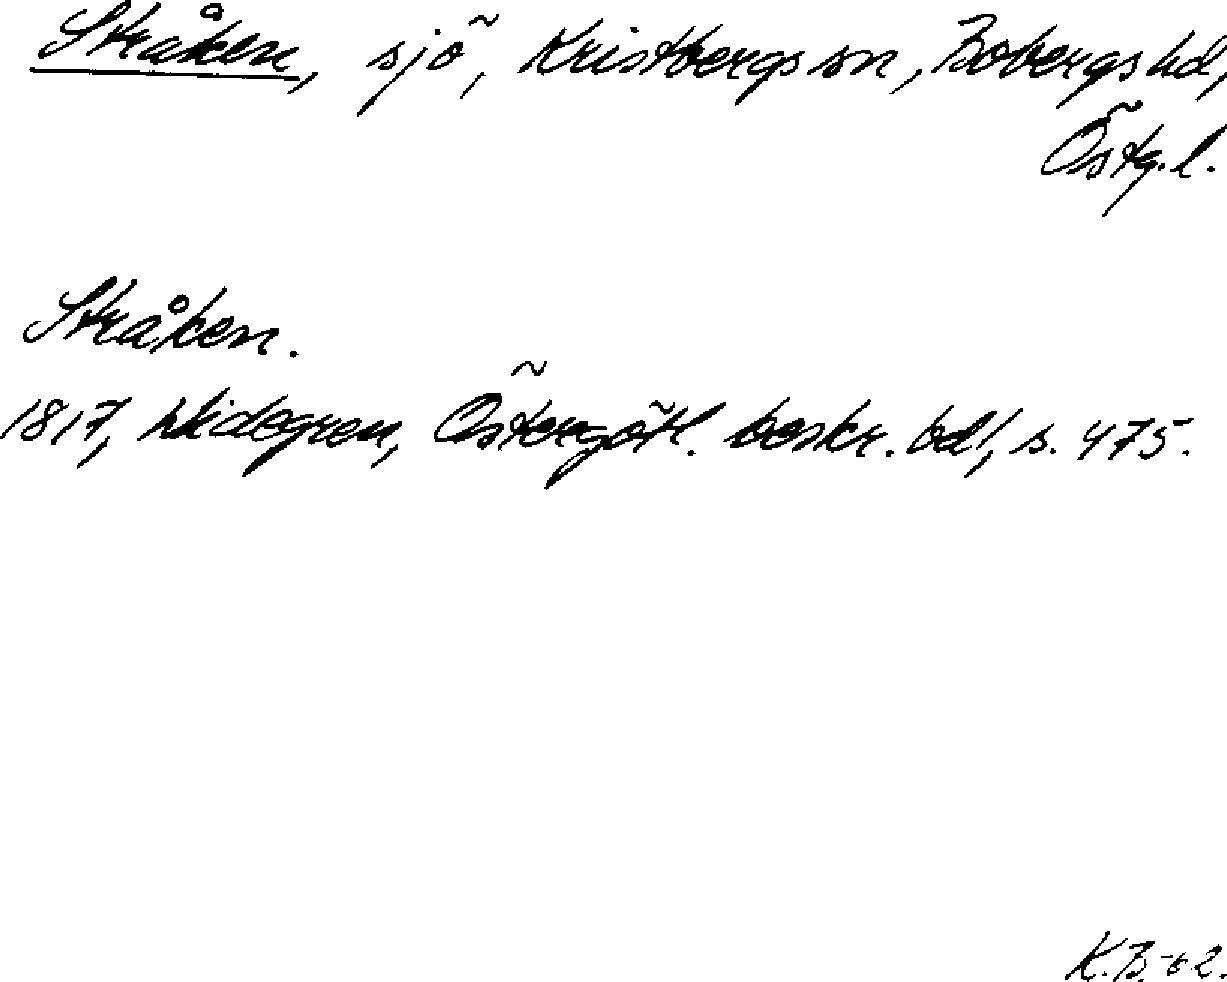 Stråken, sjö, Kristbergs sn, Bobergs hd,
Östg.l.
Stråken.
1817, Widegren, Östergötl. beskr. bd 1, s. 475.
K.B.-62.